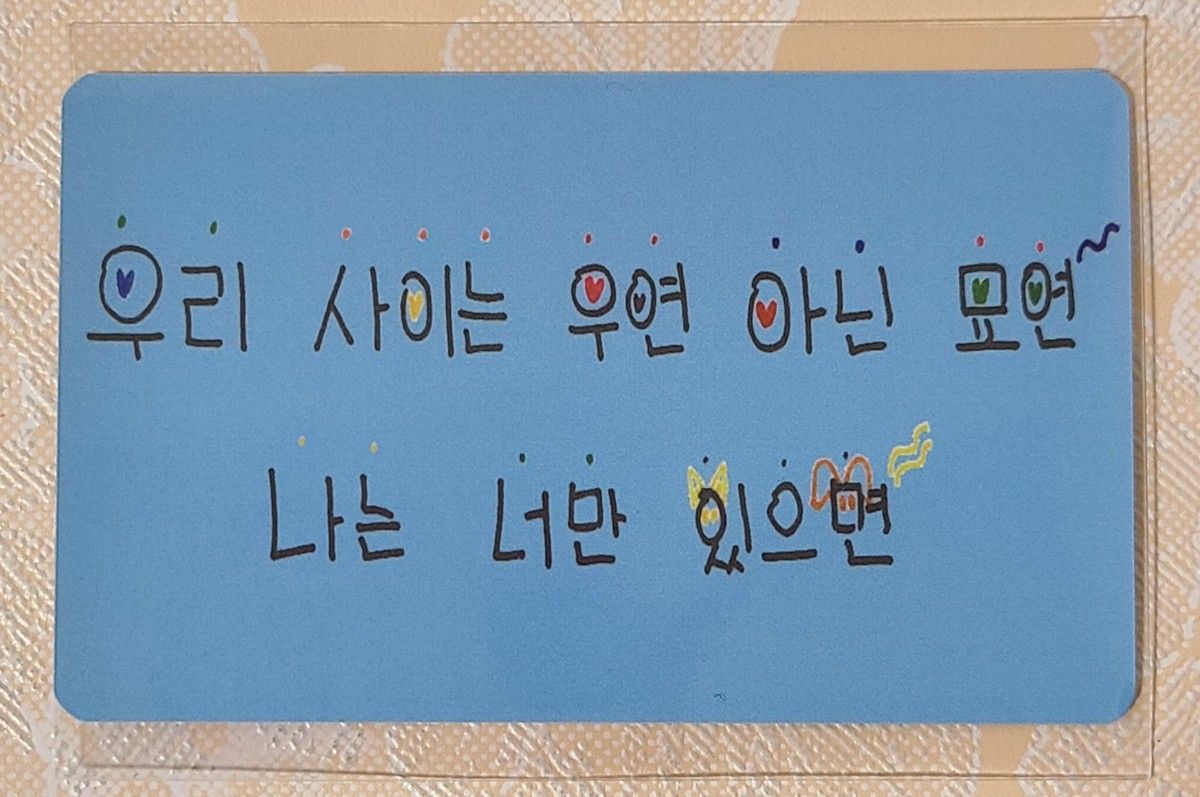 우리 사이는 우연 아닌 묘연~
나는 너만 있으면~